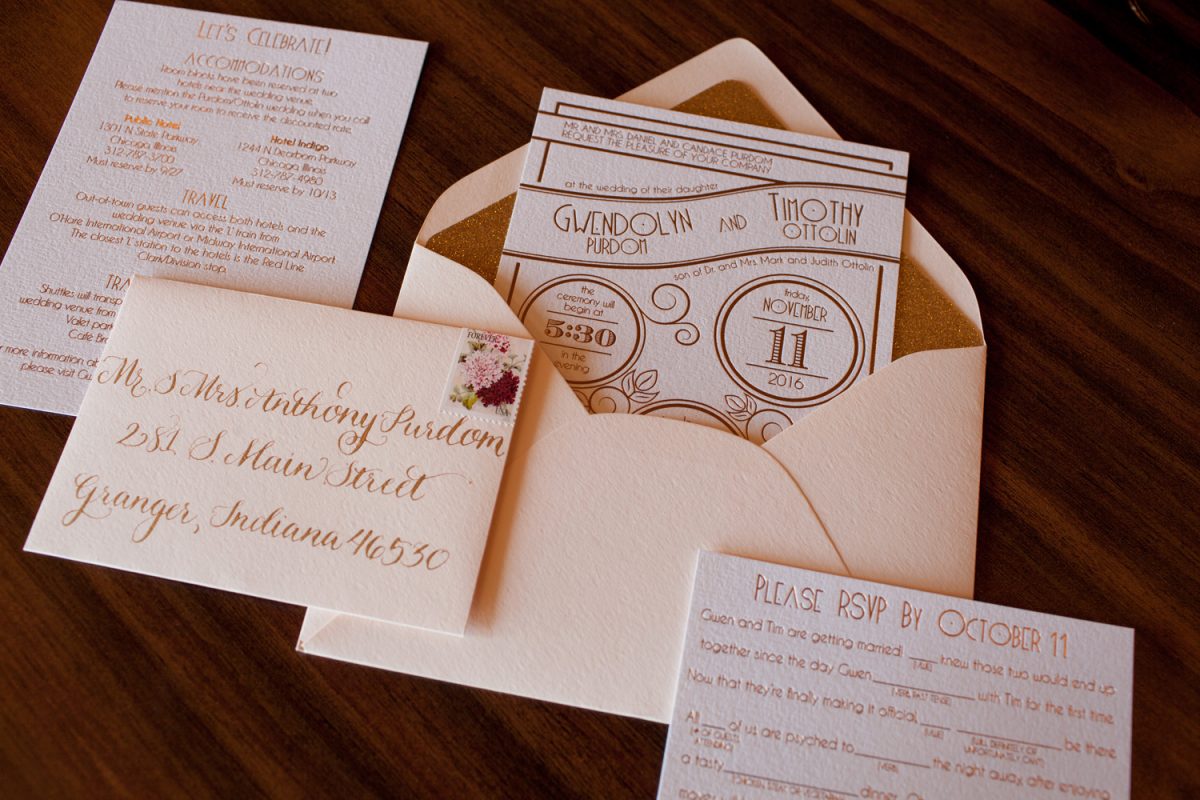 LET'S CELEBRATE!
ACCOMMODATIONS
Room blocks have been reserved at two
hotels near the wedding venue.
Please mention the Purdom/Ottolin wedding when you call
to reserve your room to receive the discounted rate.
Public Hotel
1301 N State Parkway
Chicago, Illinois
312-787-3700
Must reserve by 9/27
Hotel Indigo
1244 N Dearborn Parkway
Chicago, Illinois
312-787-4980
Must reserve by 10/13
TRAVEL
Out-of-town guests can access both hotels and the
wedding venue via the 'L' train from
O'Hare International Airport or Midway International Airport.
The closest 'L' station to the hotels is the Red Line
Clark/Division stop.
TRA
Shuttles will transp
wedding venue from
Valet park
Cafe Br
more information a
please visit
Mr. & Mrs. Anthony Purdom
281 S. Main Street
Granger, Indiana 46530
FOREVER
MR. AND MRS. DANIEL AND CANDACE PURDOM
REQUEST THE PLEASURE OF YOUR COMPANY
at the wedding of their daughter
GWENDOLYN
PURDOM
AND
TIMOTHY
OTTOLIN
son of Dr. and Mrs. Mark and Judith Ottolin
the
ceremony will
begin at
5:30
in the
evening
friday,
NOVEMBER
11
2016
PLEASE RSVP BY OCTOBER 11
Gwen and Tim are getting married! ___ knew those two would end up
(I/WE)
together since the day Gwen ___ with Tim for the first time.
(VERB, PAST TENSE)
Now that they're finally making it official, ___ ___ be there
(I/WE) (WILL DEFINITELY OR
UNFORTUNATELY CAN'T)
All ___ of us are psyched to ___ the night away, after enjoying
(# OF GUESTS
ATTENDING) (VERB)
a tasty ___ dinner.